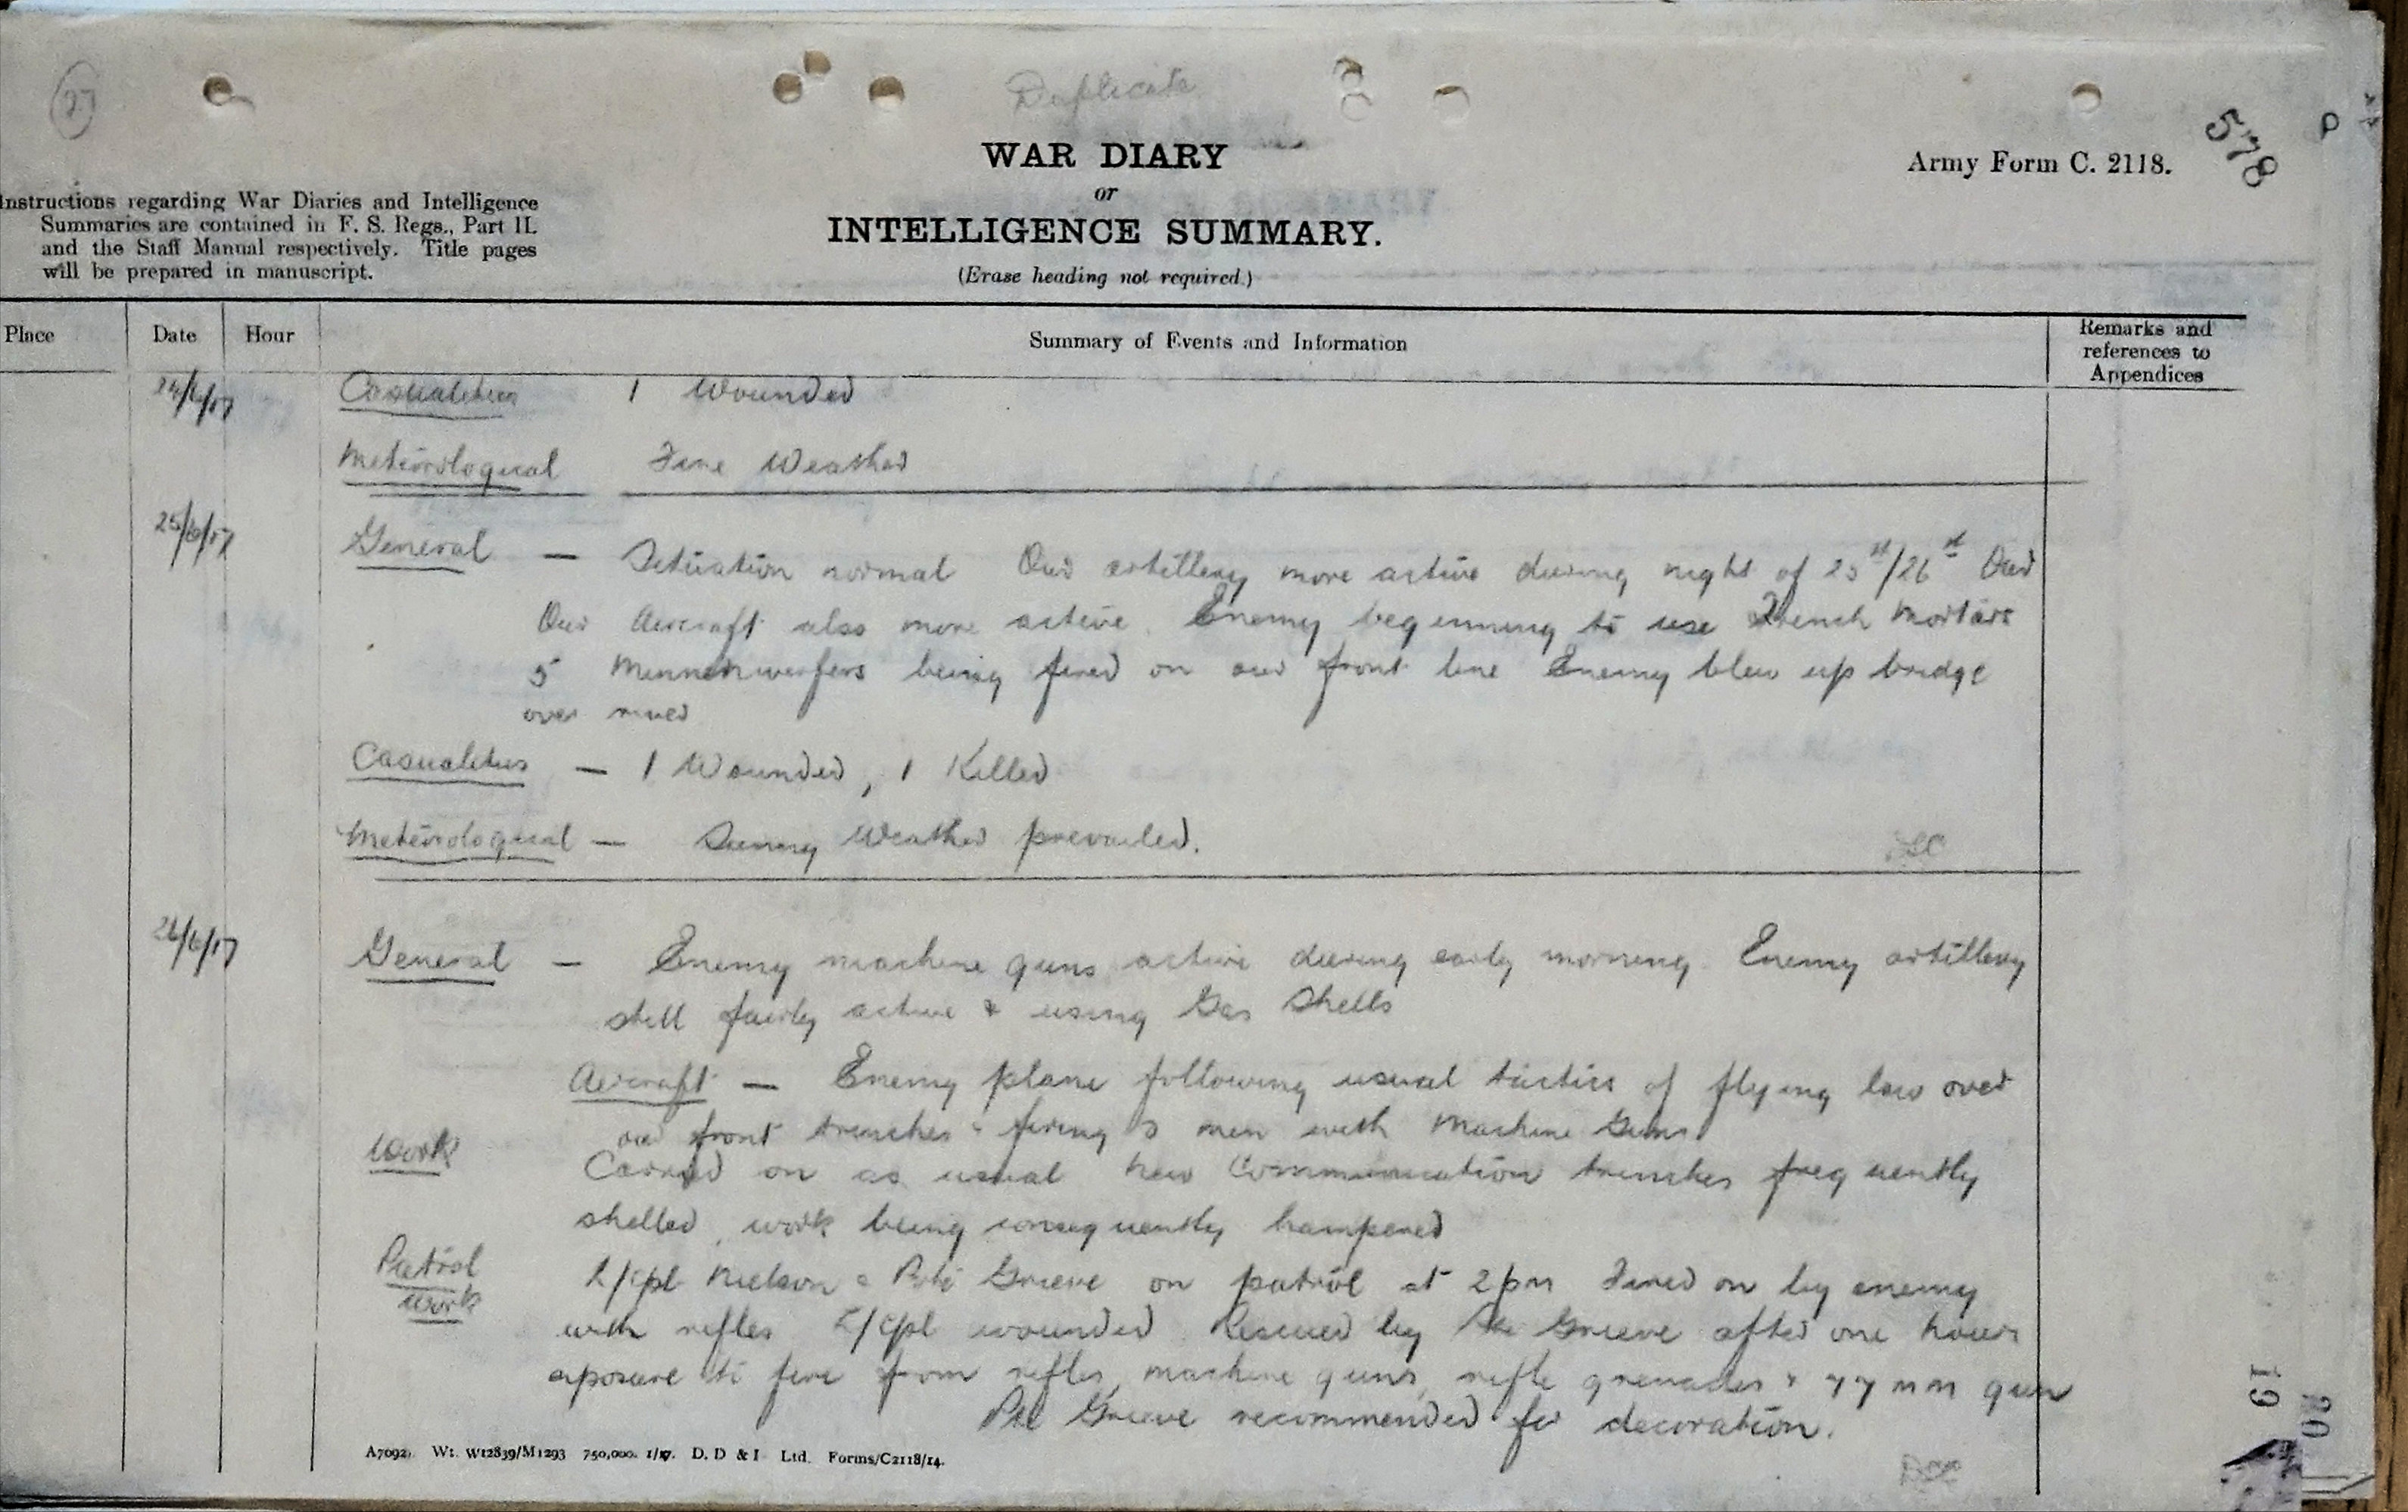 27
Duplicate
WAR DIARY
or
INTELLIGENCE SUMMARY.
(Erase heading not required.)
Army Form C. 2118.
578
Instructions regarding War Diaries and Intelligence
Summaries are contained in F. S. Regs., Part II.
and the Staff Manual respectively. Title pages
will be prepared in manuscript.
Place Date Hour Summary of Events and Information Remarks and
references to
Appendices
24/6/17 Casualties 1 Wounded
Meteorological Fine Weather
25/6/17 General — Situation normal Our artillery more active during night of 25st/26st Our
Our Aircraft also more active. Enemy beginning to use Trench Mortars
5 Minnenwerfers being fired on our front line Enemy blew up bridge
over
Casualties — 1 Wounded, 1 Killed
Meteorological — Sunny Weather prevailed.
26/6/17 General — Enemy machine guns active during early morning. Enemy artillery
still fairly active & using Gas Shells
Aircraft — Enemy plane following usual tactics of flying low over
our front trenches & firing men with Machine Guns.
Work Carried on as usual New Communication trenches frequently
shelled, work being consequently hampered
Patrol L/Cpl Nielson & Pte Grieve on patrol at 2pm Fired on by enemy
work with rifles L/Cpl wounded. Rescued by Pte Grieve after one hours
exposure to fire from rifles, machine guns, rifle grenades & 77mm gun
Pte Grieve recommended for decoration.
A7092). Wt. W12839/M1293 750,000. 1/17. D. D & I Ltd. Forms/C2118/14.
19
20